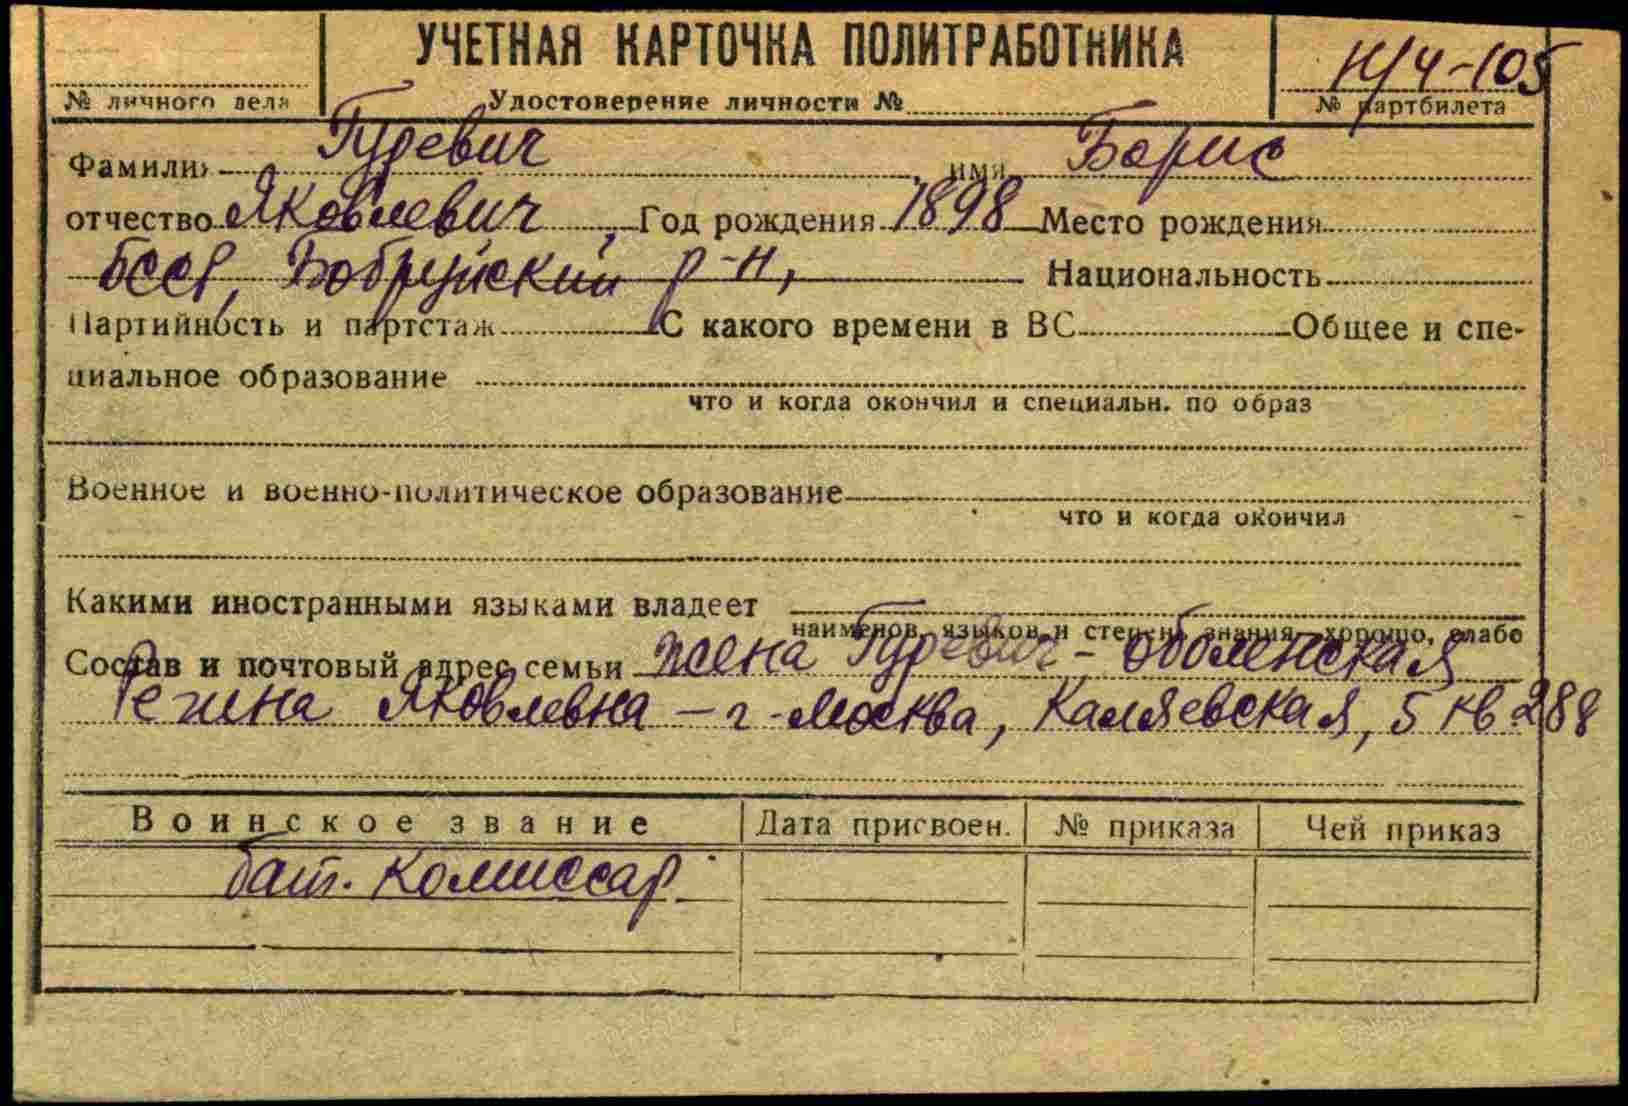 УЧЕТНАЯ КАРТОЧКА ПОЛИТРАБОТНИКА
Н/Ч-105
№ личного дела Удостоверение личности № № партбилета
Фамилия Гуревич имя Борис
отчество Яковлевич, Год рождения 1898 Место рождения
БССР, Бобруйский р-н, Национальность
Партийность и партстаж С какого времени в ВС Общее и спе-
циальное образование
что и когда окончил и специальн. по образ
Военное и военно-политическое образование
что и когда окончил
Какими иностранными языками владеет
наименов. языков и степень знания хорошо, слабо
Состав и почтовый адрес семьи жена Гуревич-Оболенская
Регина Яковлевна - г. Москва, Каляевская, 5 кв 288
Воинское звание Дата присвоен. № приказа Чей приказ
бат. комиссар